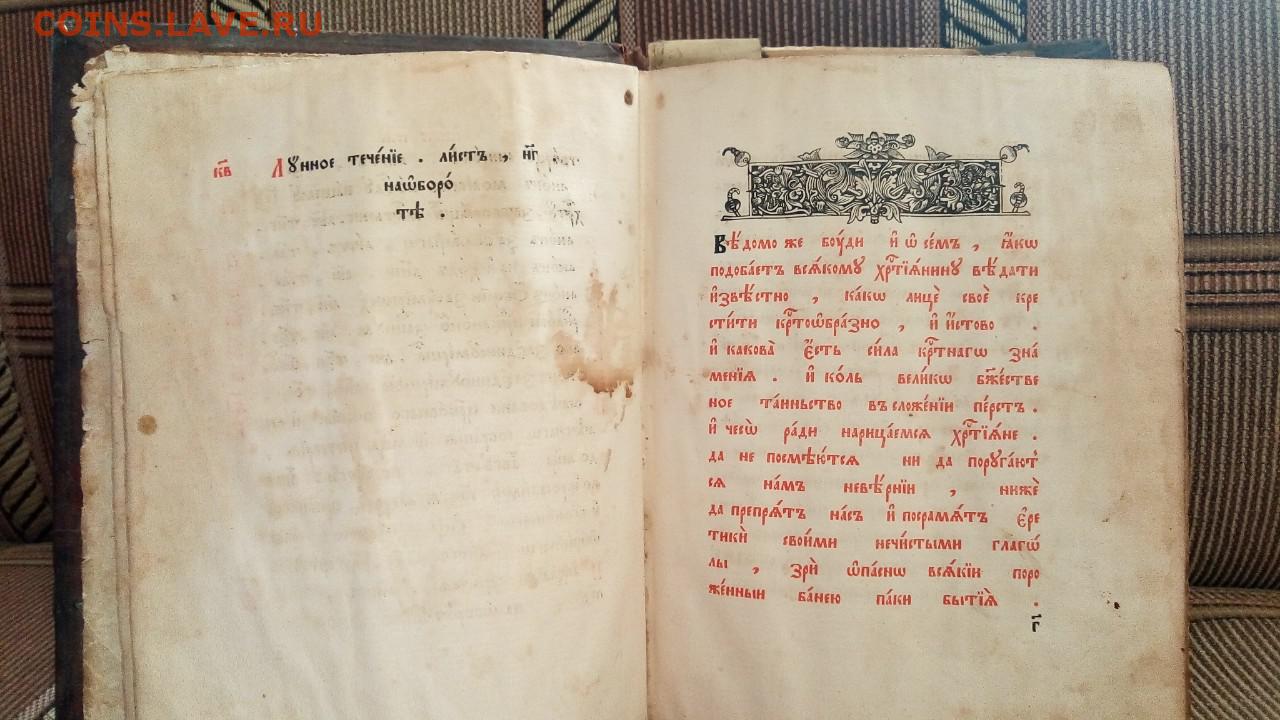 COINS.LAVE.RU
к҃в Лꙋ́нное тече́нїе . ли́стъ , н҃г
наѡ҆боро́
тѣ .
Вѣ́домо же бꙋ́ди и҆ ѡ҆ се́мъ , ꙗ҆́кѡ
подоба́етъ всѧ́комꙋ хрⷭ҇тїѧ́нинꙋ вѣ́дати
и҆звѣ́стно , ка́кѡ лицѐ своѐ кре
сти́ти крⷭ҇тоѡбра́зно , и҆ и҆́стово .
и҆ какова̀ є҆́сть си́ла крⷭ҇тнагѡ зна́
менїѧ . и҆ ко́ль вели́кѡ бж҃е́стве
ное та́иньство въ сложе́нїи пе́рстъ .
и҆ чесѡ̀ ра́ди нарица́емсѧ хрⷭ҇тїѧ́не .
да не посмѣю́тсѧ ни да порꙋга́ют̾
сѧ на́мъ невѣ́рнїи , нижѐ
да препрѧ́тъ на́съ и҆ посрамѧ́тъ є҆ре
тикѝ свои́ми нечи́стыми глаго́
лы , зрѝ ѡ҆па́снѡ всѧ́кїи поро
же́нныи ба́нею па́ки бытїѧ̀ .
г҃